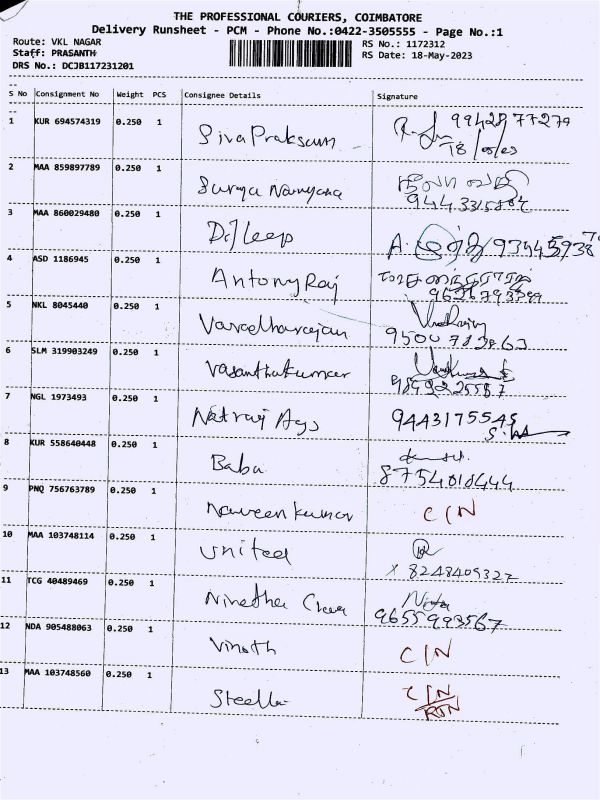 THE PROFESSIONAL COURIERS, COIMBATORE
Delivery Runsheet - PCM - Phone No.:0422-3505555 - Page No.:1
Route: VKL NAGAR
RS No.: 1172312
Staff: PRASANTH
RS Date: 18-May-2023
DRS No.: DCJB117231201
S No Consignment No Weight PCS Consignee Details Signature
1 KUR 694574319 0.250 1 Siva Praksum 9942877279
18/05/23
2 MAA 859897789 0.250 1 Surya Narayana
3 MAA 860029480 0.250 1 Dileep A.
4 ASD 1186945 0.250 1 Antony Raj
5 NKL 8045440 0.250 1 Varadharajan
9500782863
6 SLM 319903249 0.250 1 Vasanthakumar
7 NGL 1973493 0.250 1 Natraj Ags 9443175545
8 KUR 558640448 0.250 1 Baba
8754018444
9 PNQ 756763789 0.250 1 Naveen kumar C/N
10 MAA 103748114 0.250 1 United
x 8248409327
11 TCG 40489469 0.250 1 Nivetha
9655993567
12 NDA 905488063 0.250 1 Vinoth C/N
13 MAA 103748560 0.250 1 Steella C/N
RTN